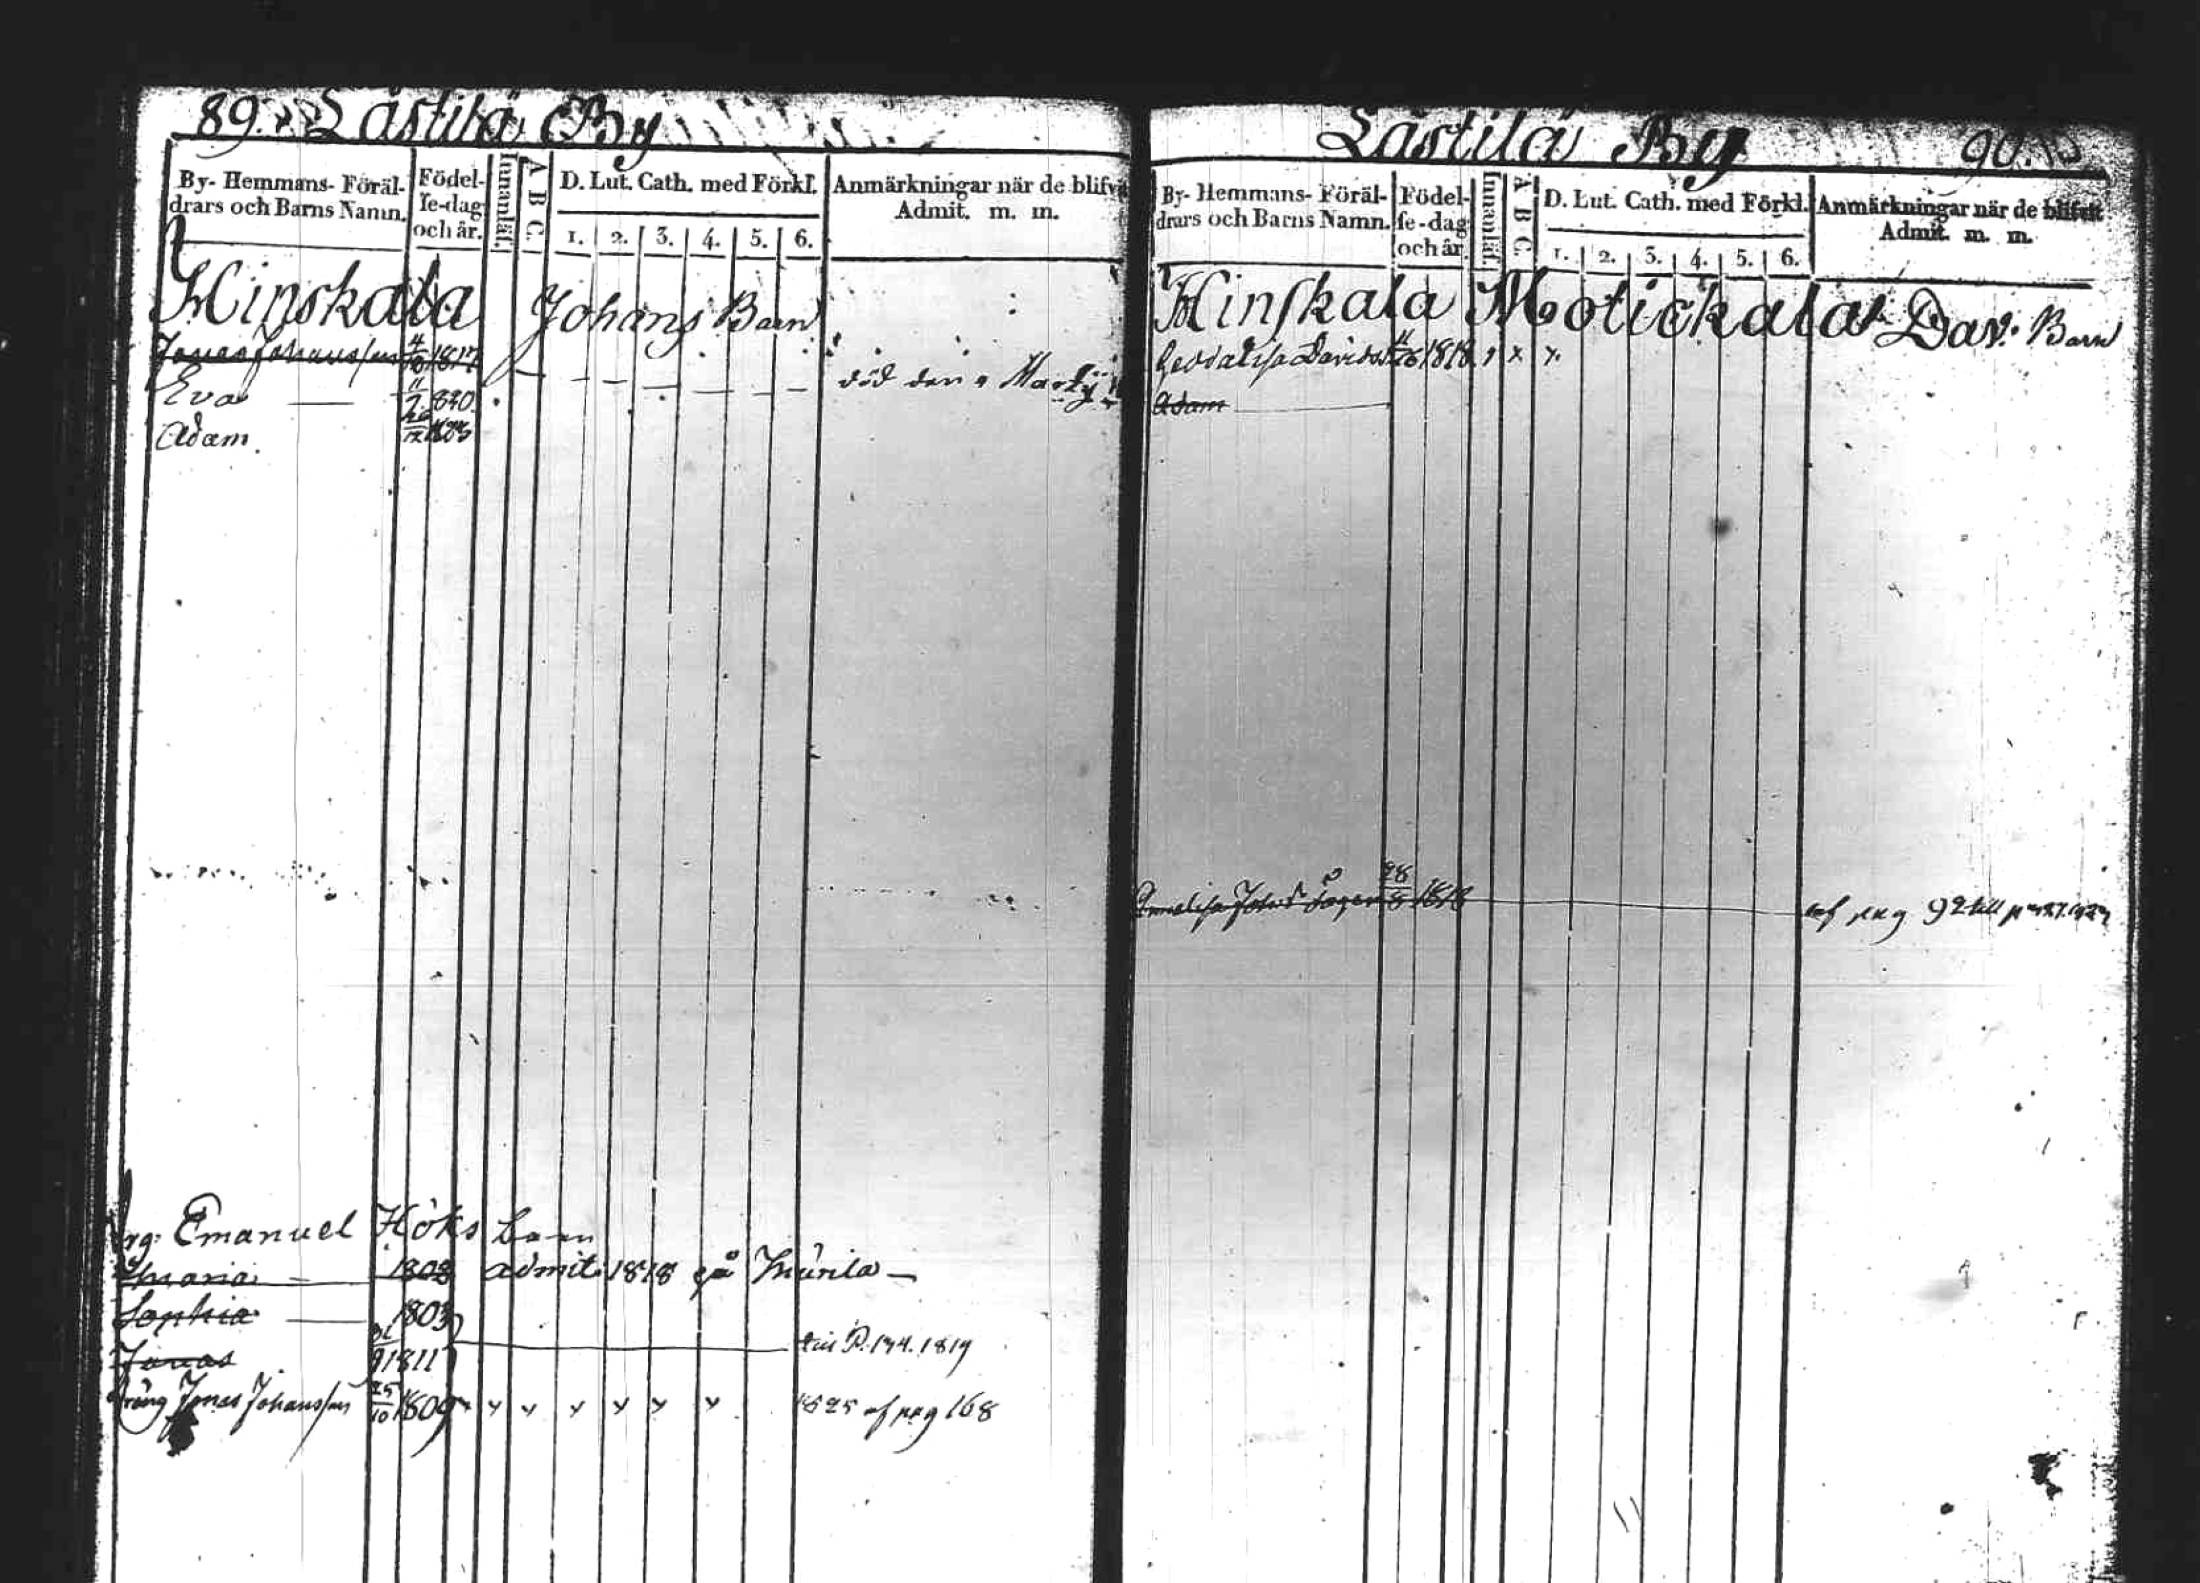 89. Lastila By
By- Hemmans- Föräl-
drars och Barns Namn.
Födel-
se-dag
och år.
Innanläs.
A B C.
D. Lut. Cath. med Förkl.
1. 2. 3. 4. 5. 6.
Anmärkningar när de blifvit
Admit. m. m.
Hinskala Johans Barn
Jonas Johansson 4/10 1817
Eva 1820 död den Martij
Adam.
Drg: Emanuel Höks barn
Maria 1802 admit. 1818 på
Sophia 1803
Jonas 1811 till P. 174. 1819
Dräng Jonas Johansson 25/10 1809 x x x x x x x 1825 af pag 168
Lastila By 90.
By- Hemmans- Föräl-
drars och Barns Namn.
Födel-
se-dag
och år.
Innanläs.
A B C.
D. Lut. Cath. med Förkl.
1. 2. 3. 4. 5. 6.
Anmärkningar när de blifvit
Admit. m. m.
Hinskala Motickala Dav: Barn
Davidsd 1818. x x
Adam
Annalisa Johsd 28/8 1818 af pag 92 till